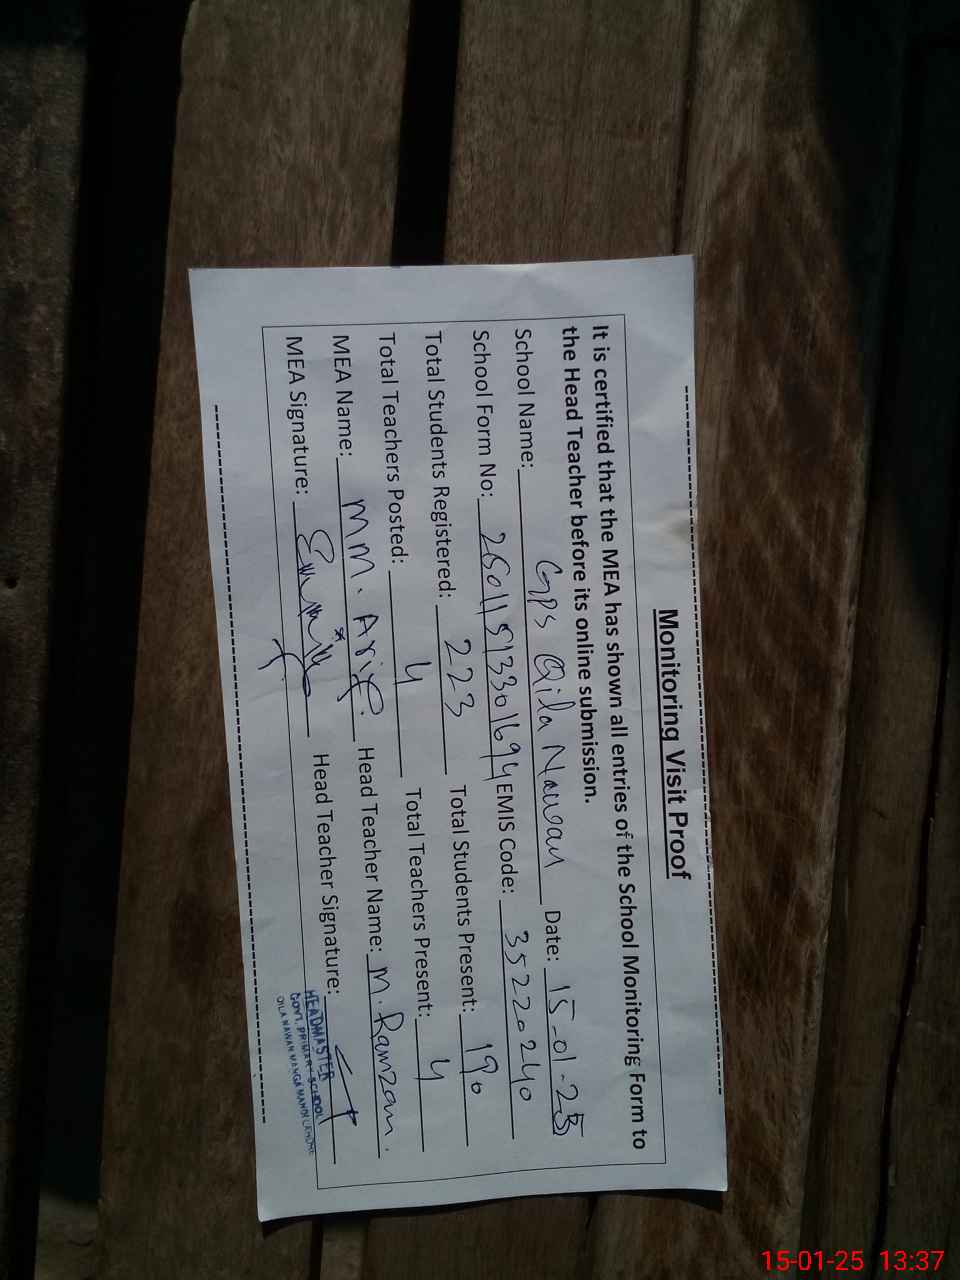 Monitoring Visit Proof
It is certified that the MEA has shown all entries of the School Monitoring Form to
the Head Teacher before its online submission.
School Name: GPS Qila Nawan Date: 15-01-25
School Form No: 26011593301694 EMIS Code: 35220240
Total Students Registered: 223 Total Students Present: 190
Total Teachers Posted: 4 Total Teachers Present: 4
MEA Name: MM. Arif. Head Teacher Name: M. Ramzan.
MEA Signature: Head Teacher Signature:
HEADMASTER
GOVT. PRIMARY SCHOOL
QILA NAWAN MANGA MANDI LAHORE
15-01-25 13:37